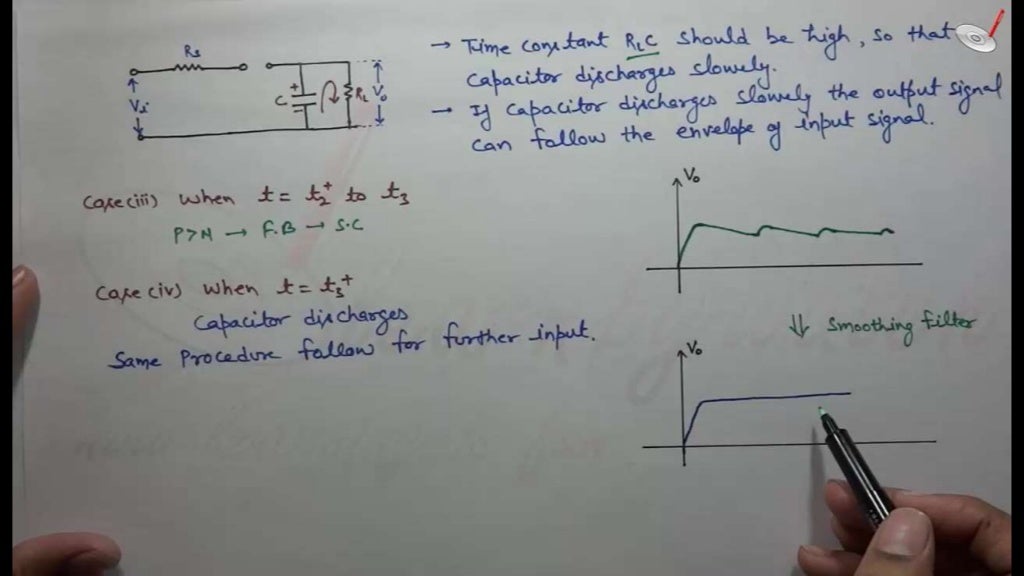 Rs
Vi
C
+
RL
Vo
→ Time constant RLC should be high, so that
capacitor discharges slowely.
→ If capacitor discharges slowely the output signal
can follow the envelope of input signal.
Case(iii) when t = t2+ to t3
P>N → F.B → S.C
Case(iv) when t = t3+
Capacitor discharges
Same Procedure follow for further input.
Vo
⇓ Smoothing Filter
Vo